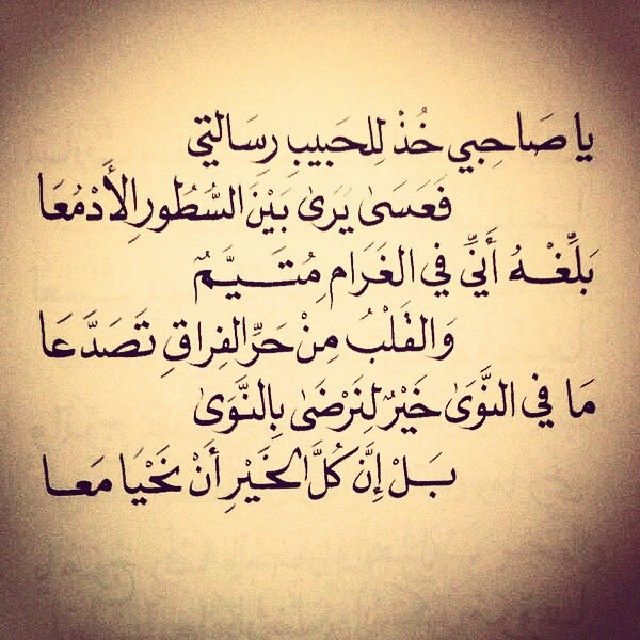 يا صَاحِبي خُذْ لِلحَبيبِ رِسَالتي
فَعَسَىٰ يَرىٰ بَيْنَ السُّطُورِ الأَدْمُعَا
بَلِّغْـهُ أَنِّي في الغَرَامِ مُتَـــيَّـمٌ
وَالقَلْبُ مِنْ حَرِّ الفِراقِ تَصَدَّعَا
مَا في النَّوَىٰ خَيْرٌ لِنَرْضَىٰ بِالنَّوَىٰ
بَـلْ إِنَّ كُلَّ الخَيْرِ أَنْ نَحْيَا مَعـا